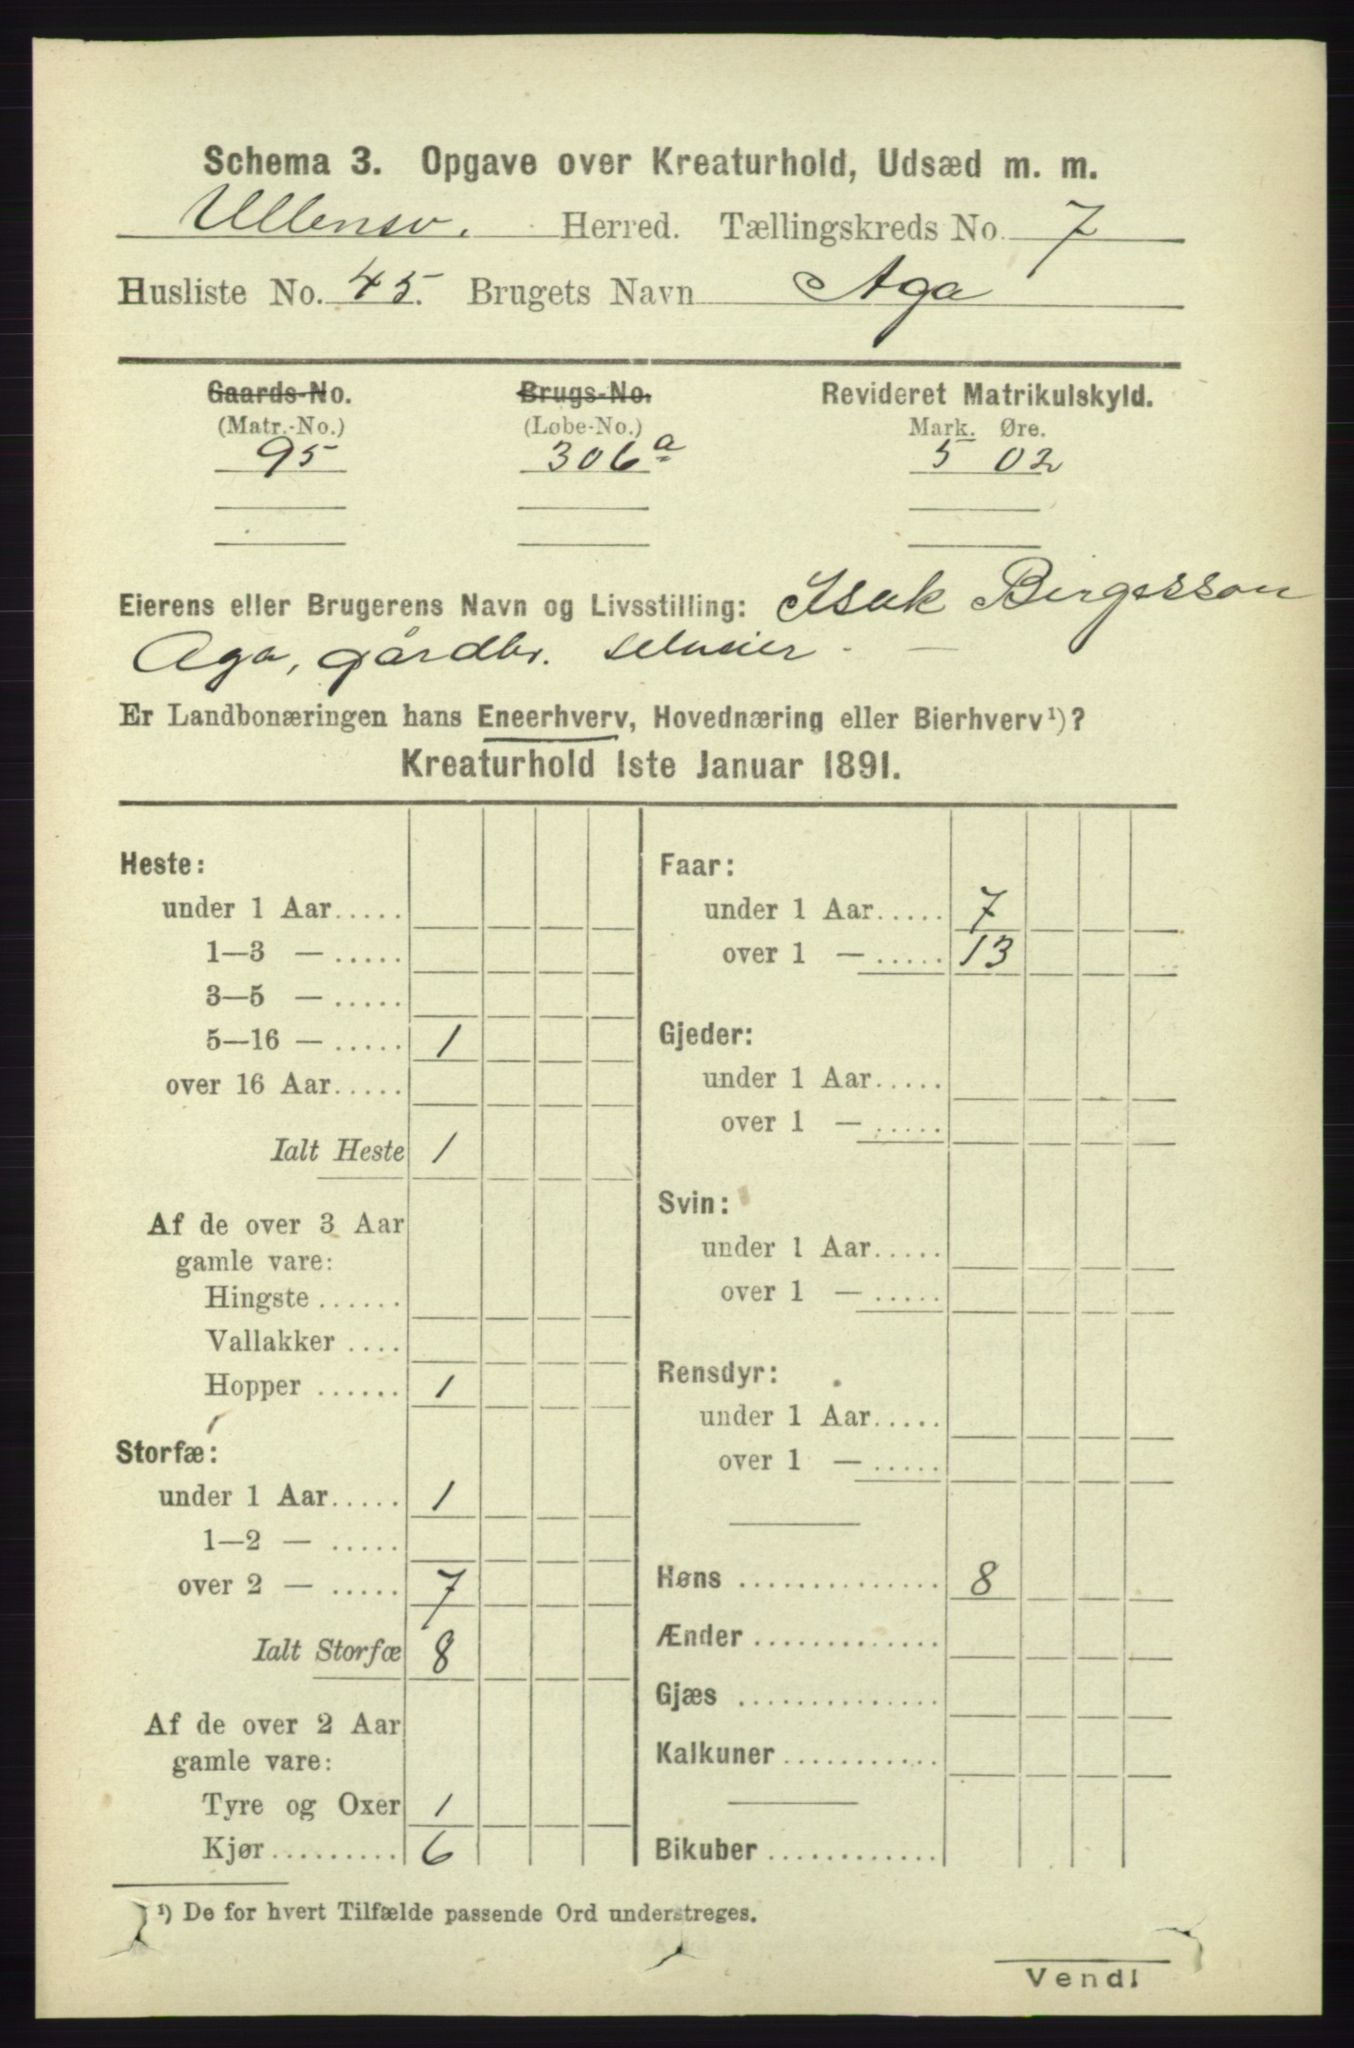 Schema 3. Opgave over Kreaturhold, Udsæd m. m.
Ullensv. Herred. Tællingskreds No. 7
Husliste No. 45. Brugets Navn Aga
Gaards-No. Brugs-No. Revideret Matrikulskyld.
(Matr.-No.) (Løbe-No.) Mark. Øre.
95 306a 5 02
Eierens eller Brugerens Navn og Livsstilling: Isak Birgesson
Aga, gårdbr. selveier.
Er Landbonæringen hans Eneerhverv, Hovednæring eller Bierhverv¹)?
Kreaturhold 1ste Januar 1891.
Heste:
under 1 Aar.....
1—3 — .....
3—5 — .....
5—16 — ..... 1
over 16 Aar.....
Ialt Heste 1
Af de over 3 Aar
gamle vare:
Hingste ......
Vallakker ....
Hopper ...... 1
Storfæ:
under 1 Aar..... 1
1—2 — .....
over 2 — ..... 7
Ialt Storfæ 8
Af de over 2 Aar
gamle vare:
Tyre og Oxer 1
Kjør......... 6
Faar:
under 1 Aar..... 7
over 1 — ..... 13
Gjeder:
under 1 Aar.....
over 1 — .....
Svin:
under 1 Aar.....
over 1 — .....
Rensdyr:
under 1 Aar.....
over 1 — .....
Høns .............. 8
Ænder .............
Gjæs ..............
Kalkuner ...........
Bikuber ............
¹) De for hvert Tilfælde passende Ord understreges.
Vend!